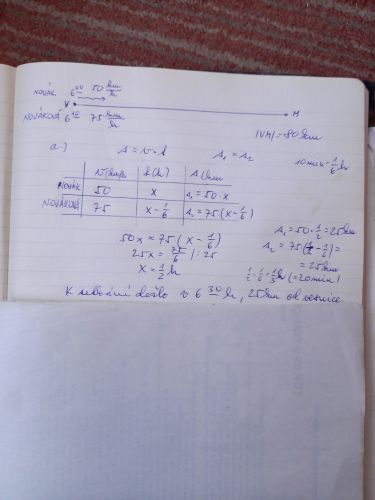 NOVÁK 6⁰⁰ 50 km/h
V M
NOVÁKOVÁ 6¹⁰ 75 km/h
|VM| = 80 km
a) s = v · t s₁ = s₂ 10 min = 1/6 h
v (km/h) t (h) s (km)
NOVÁK 50 x s₁ = 50 · x
NOVÁKOVÁ 75 x - 1/6 s₂ = 75 (x - 1/6)
50x = 75 (x - 1/6)
25x = 75/6 / : 25
x = 1/2 h
s₁ = 50 · 1/2 = 25 km
s₂ = 75 (1/2 - 1/6) =
= 25 km
1/2 - 1/6 = 1/3 h (= 20 min)
K setkání došlo v 6 30 h, 25 km od vesnice